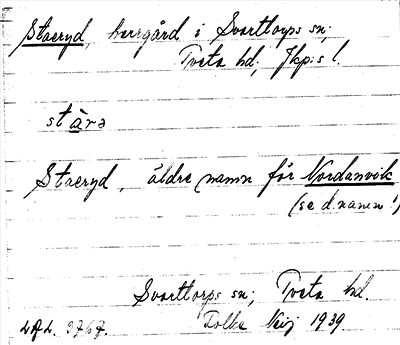 Staeryd, herrgård i Svarttorps sn;
Tveta hd; Jkpgs l.
stàrə
Staeryd, äldre namn för Nordanvik
(se d. namn!)
Svarttorps sn; Tveta hd.
Folke Neij 1939